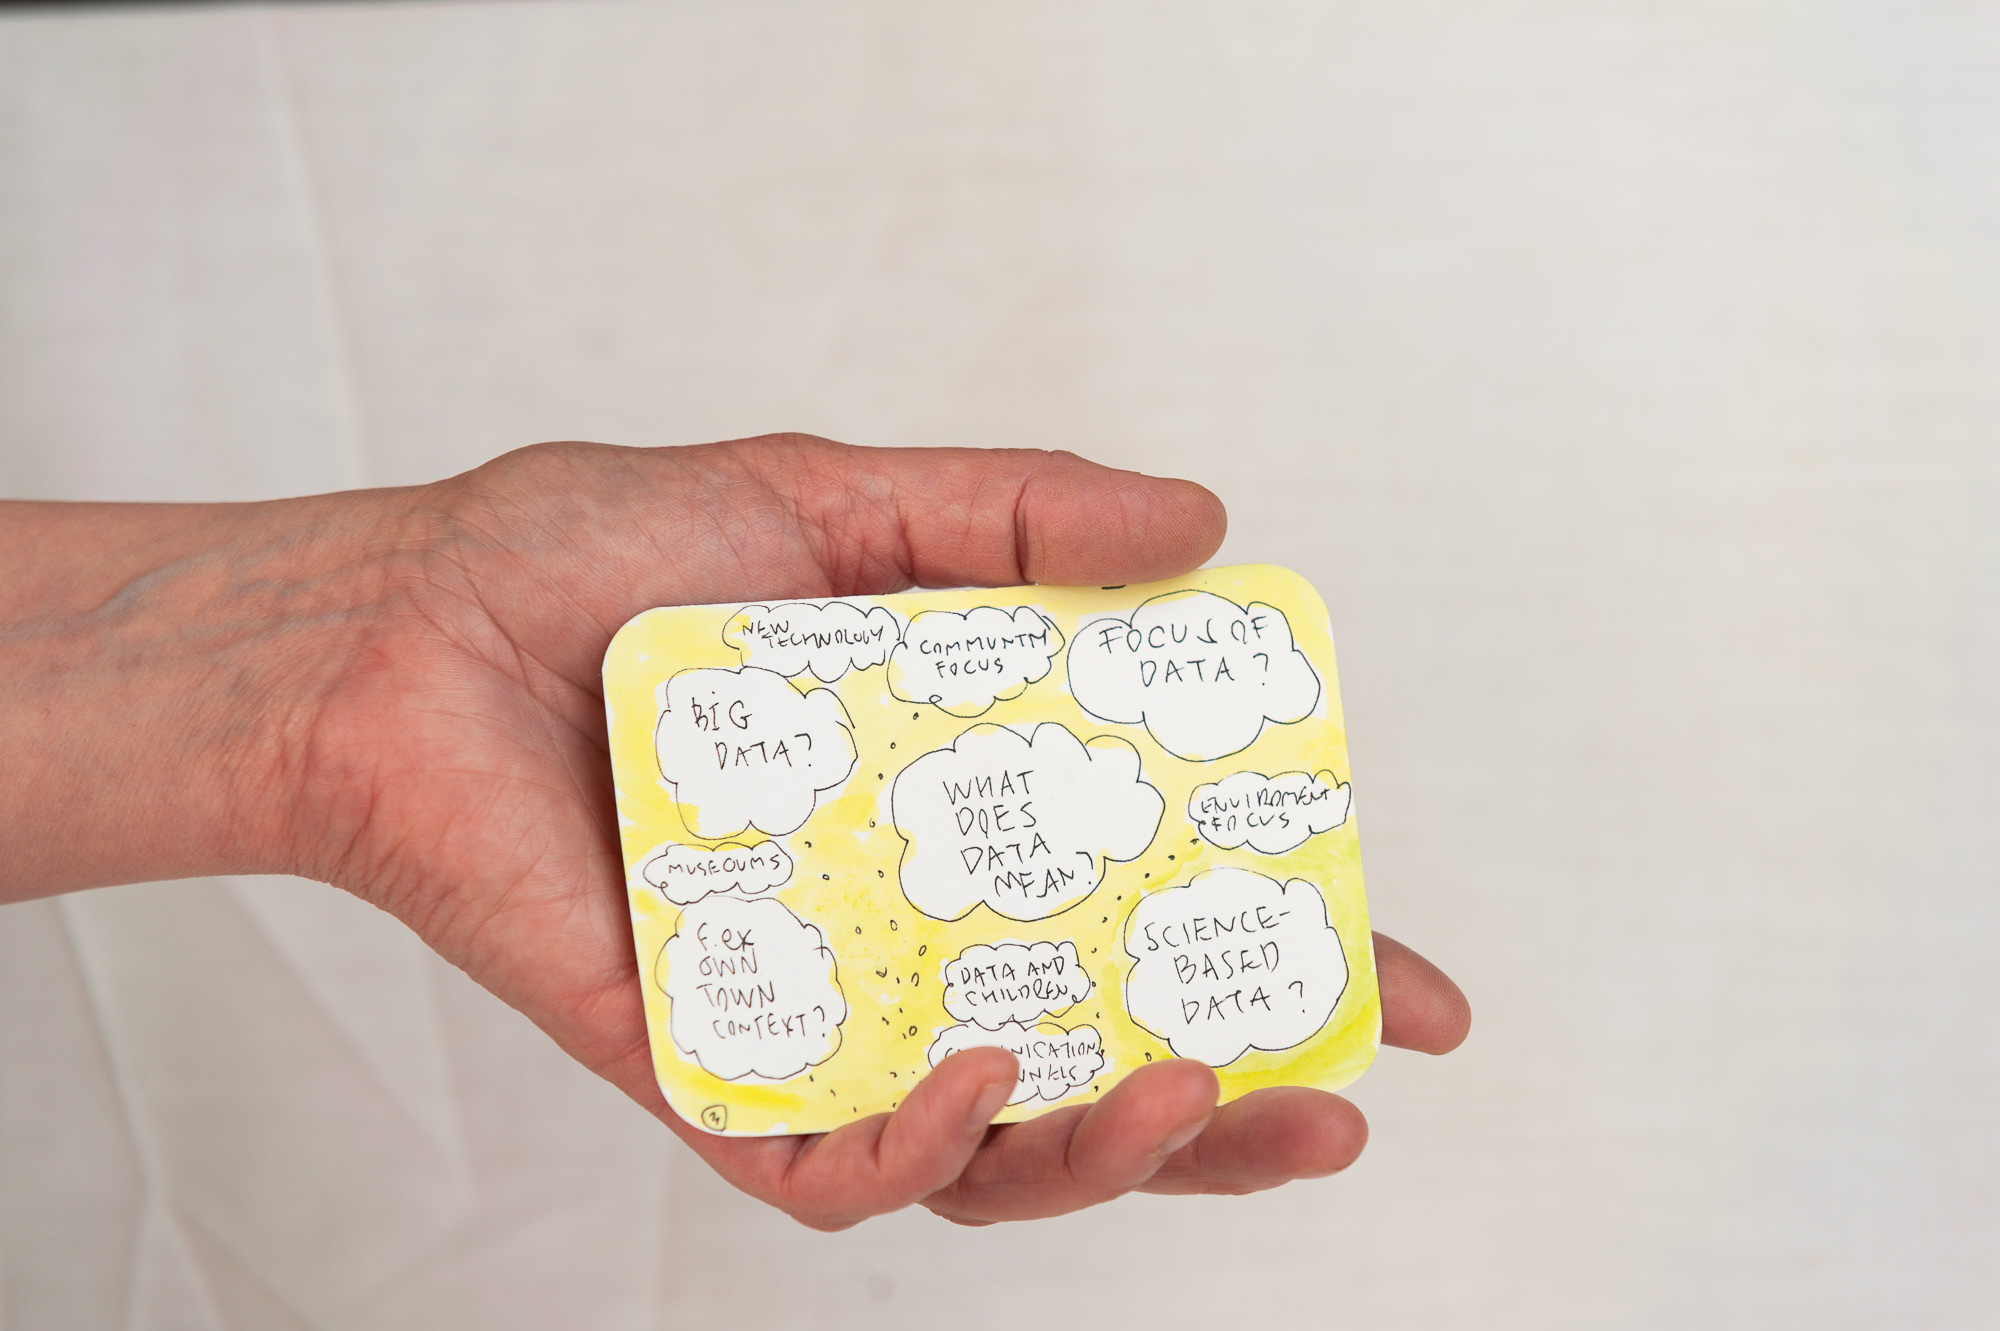 NEW
TECHNOLOGY
COMMUNTY
FOCUS
FOCUS OF
DATA?
BIG
DATA?
WHAT
DOES
DATA
MEAN?
ENVIROMENT
FOCUS
MUSEOUMS
f.ex
OWN
TOWN
CONTEXT?
DATA AND
CHILDREN
SCIENCE-
BASED
DATA?